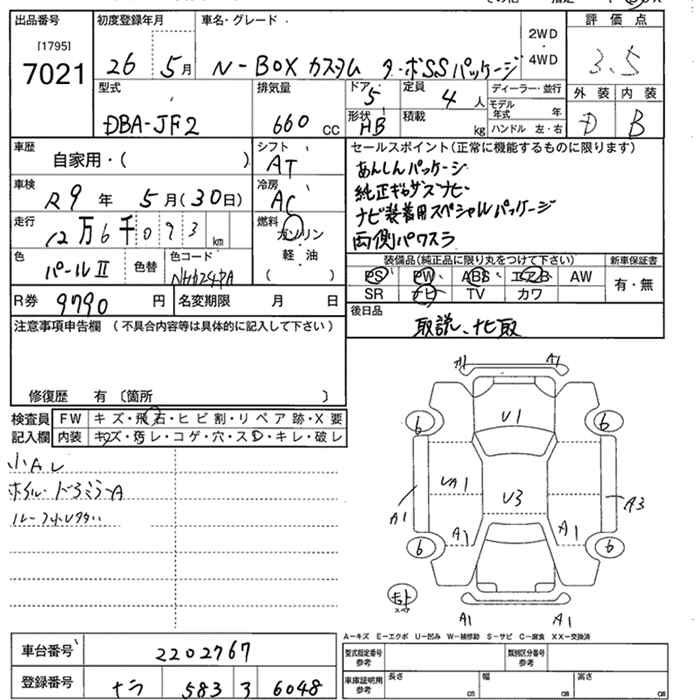 出品番号 初度登録年月 車名・グレード 評価点
[1795]
7021 26 5月 N-BOX カスタム ターボSSパッケージ 2WD 4WD 3.5
型式 排気量 ドア 5 定員 4人 ディーラー・並行 外装 内装
DBA-JF2 660 CC 形状 HB 積載 kg モデル年式 年 ハンドル 左・右 D B
車歴 自家用・( ) シフト AT セールスポイント(正常に機能するものに限ります)
あんしんパッケージ
車検 R9年 5月(30日) 冷房 AC 純正ギャザズナビ
ナビ装着用スペシャルパッケージ
走行 12万6千093km 燃料 ガソリン 軽油 ( ) 両側パワスラ
色 パールⅡ 色替 色コード NH624PA 装備品(純正品に限り丸をつけて下さい) 新車保証書
PS PW ABS エアB AW 有・無
R券 9790円 名変期限 月 日 SR ナビ TV カワ
注意事項申告欄(不具合内容等は具体的に記入して下さい) 後日品
取説、ナビ取
修復歴 有 〔箇所 〕
検査員 FW キズ・飛石・ヒビ割・リペア跡・X要
記入欄 内装 キズ・汚レ・コゲ・穴・スレ・キレ・破レ
小AU
ホイル・ドアミラーA
A1 A1
U1
6 6
UA1 U3
A1 A3
A1 A1
6 6
スペア
A1 A1
A-キズ E-エクボ U-凹み W-補修跡 S-サビ C-腐食 XX-交換済
車台番号 2202767 型式指定番号 参考 類別区分番号 参考
登録番号 ナラ 583 ミ 6048 車庫証明用 参考 長さ cm 幅 cm 高さ cm